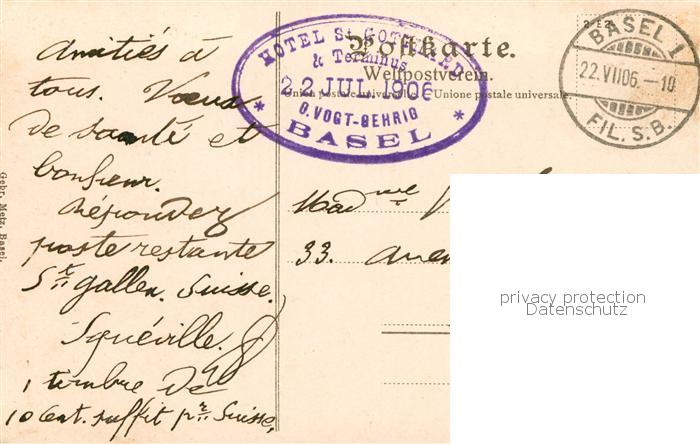 Amitiés à
tous. Voeux
de santé et
bonheur.
Répondez
poste restante
St gallen. Suisse.
Squéville.
1 timbre de
10 Cent. suffit pr Suisse.
Gebr. Metz, Basel.
HOTEL St GOTTHARD
& Terminus
22 JUL. 1906
O. VOGT-GEHRIG
BASEL
Postkarte.
Weltpostverein.
Union postale universelle. Unione postale universale.
BASEL 1
22.VII06.-10
FIL. S.B.
Madme
33.
privacy protection
Datenschutz